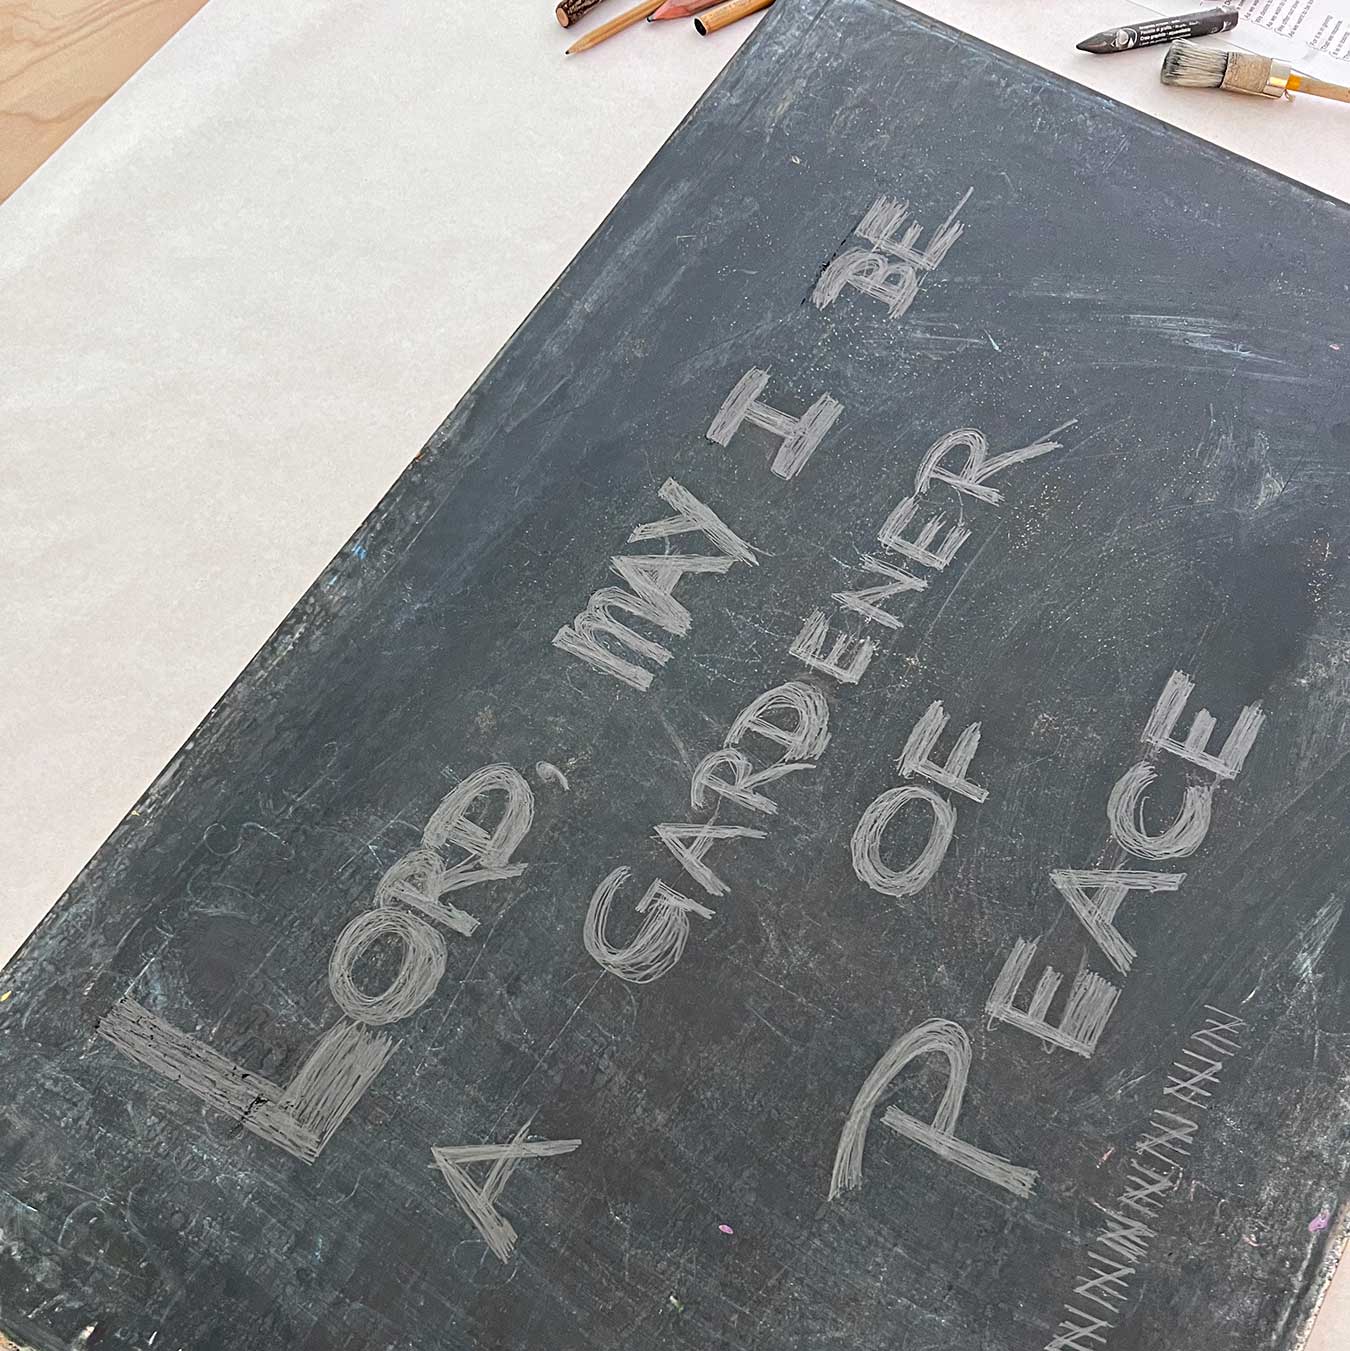 LORD, MAY I BE
A GARDENER
OF
PEACE